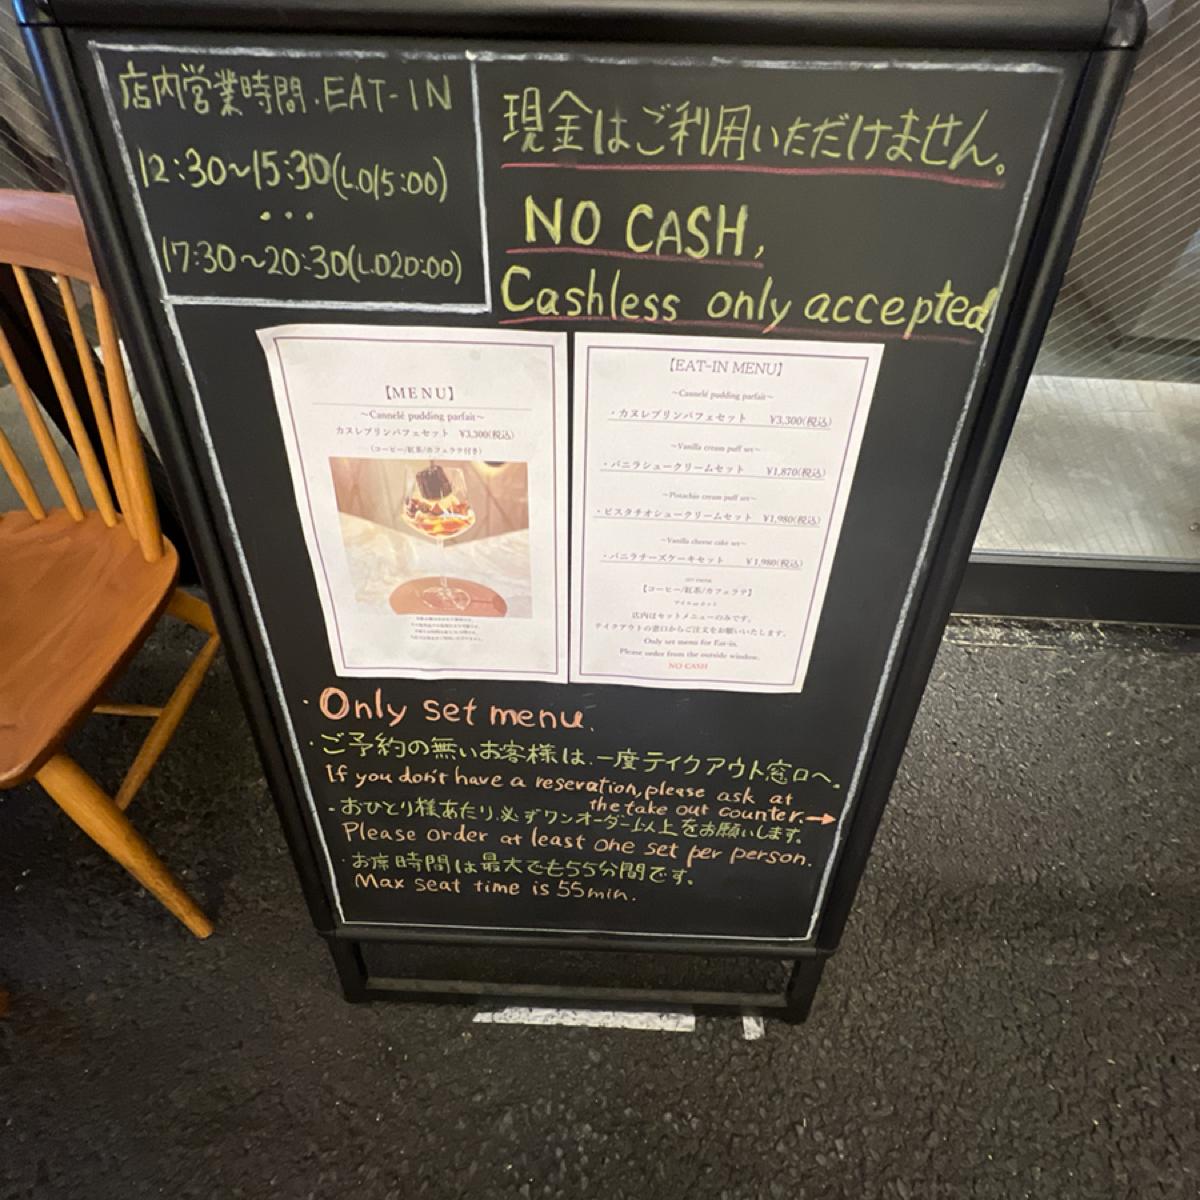 店内営業時間.EAT-IN
12:30～15:30(L.O15:00)
・・・
17:30～20:30(L.O20:00)
現金はご利用いただけません。
NO CASH,
Cashless only accepted
【MENU】
～Cannelé pudding parfait～
カヌレプリンパフェセット ¥3,300(税込)
(コーヒー/紅茶/カフェラテ付き)
【EAT-IN MENU】
～Cannelé pudding parfait～
・カヌレプリンパフェセット ¥3,300(税込)
～Vanilla cream puff set～
・バニラシュークリームセット ¥1,870(税込)
～Pistachio cream puff set～
・ピスタチオシュークリームセット ¥1,980(税込)
～Vanilla cheese cake set～
・バニラチーズケーキセット ¥1,980(税込)
【コーヒー/紅茶/カフェラテ】
店内はセットメニューのみです。
テイクアウトの窓口からご注文をお願いいたします。
Only set menu for Eat-in.
Please order from the outside window.
NO CASH
・Only set menu.
・ご予約の無いお客様は、一度テイクアウト窓口へ。
If you don't have a reservation, please ask at
the take out counter.→
・おひとり様あたり、必ずワンオーダー以上をお願いします。
Please order at least one set per person.
・お席時間は最大でも55分間です。
Max seat time is 55min.